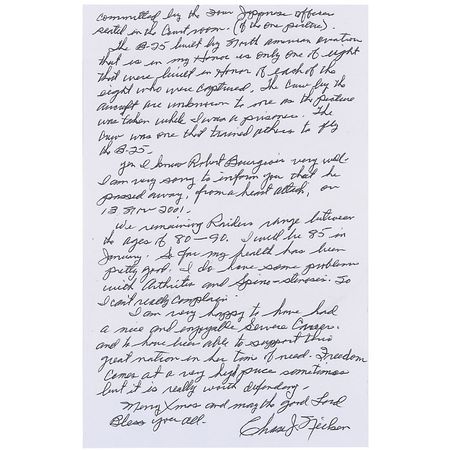 committed by the four Japanese officers
seated in the Court room. (of the one picture).
The B-25 built by North american aviation
that is in my Honor is only one of eight
that were built in Honor of each of the
eight who were captured. The Crew by the
aircraft are unknown to me as the picture
was taken while I was a prisoner. The
Crew was one that trained others to fly
the B-25.
yes I knew Robert Bourgeois very well.
I am very sorry to inform you that he
passed away, from a heart attack, on
13 Nov 2001.
We remaining Raiders range between
the ages of 80-90. I will be 85 in
January. So far my health has been
pretty good. I do have some problems
with Arthritis and Spine-stenosis. So
I can't really Complain.
I am very happy to have had
a nice and enjoyable Service Career.
and to have been able to support this
great nation in her time of need. Freedom
Comes at a very high price sometimes
but it is really worth defending.
Merry Xmas and may the good Lord
Bless you all.
Chase J. Nielsen